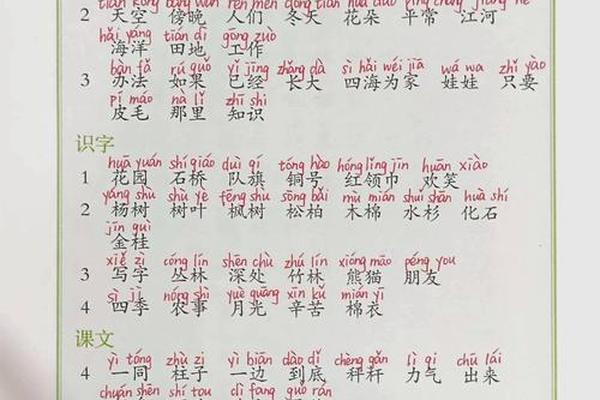 tiān kōng bàng wǎn rén men dōng tiān huā duǒ píng cháng jiāng hé
2 天空 傍晚 人们 冬天 花朵 平常 江河
hǎi yáng tián dì gōng zuò
海洋 田地 工作
bàn fǎ rú guǒ yǐ jīng zhǎng dà sì hǎi wéi jiā wá wa zhǐ yào
3 办法 如果 已经 长大 四海为家 娃娃 只要
pí máo nà lǐ zhī shi
皮毛 那里 知识
识字
huā yuán shí qiáo duì qí tóng hào hóng lǐng jīn huān xiào
1 花园 石桥 队旗 铜号 红领巾 欢笑
yáng shù shù yè fēng shù sōng bǎi mù mián shuǐ shān huà shí
2 杨树 树叶 枫树 松柏 木棉 水杉 化石
jīn guì
金桂
xiě zì cóng lín shēn chù zhú lín xióng māo péng you
3 写字 丛林 深处 竹林 熊猫 朋友
sì jì nóng shì yuè guāng xīn kǔ mián yī
4 四季 农事 月光 辛苦 棉衣
课文
yì tóng zhù zi yì biān dào dǐ chèng gǎn lì qi chū lái
4 一同 柱子 一边 到底 秤杆 力气 出来
chuán shēn shí tou dì fang guǒ rán